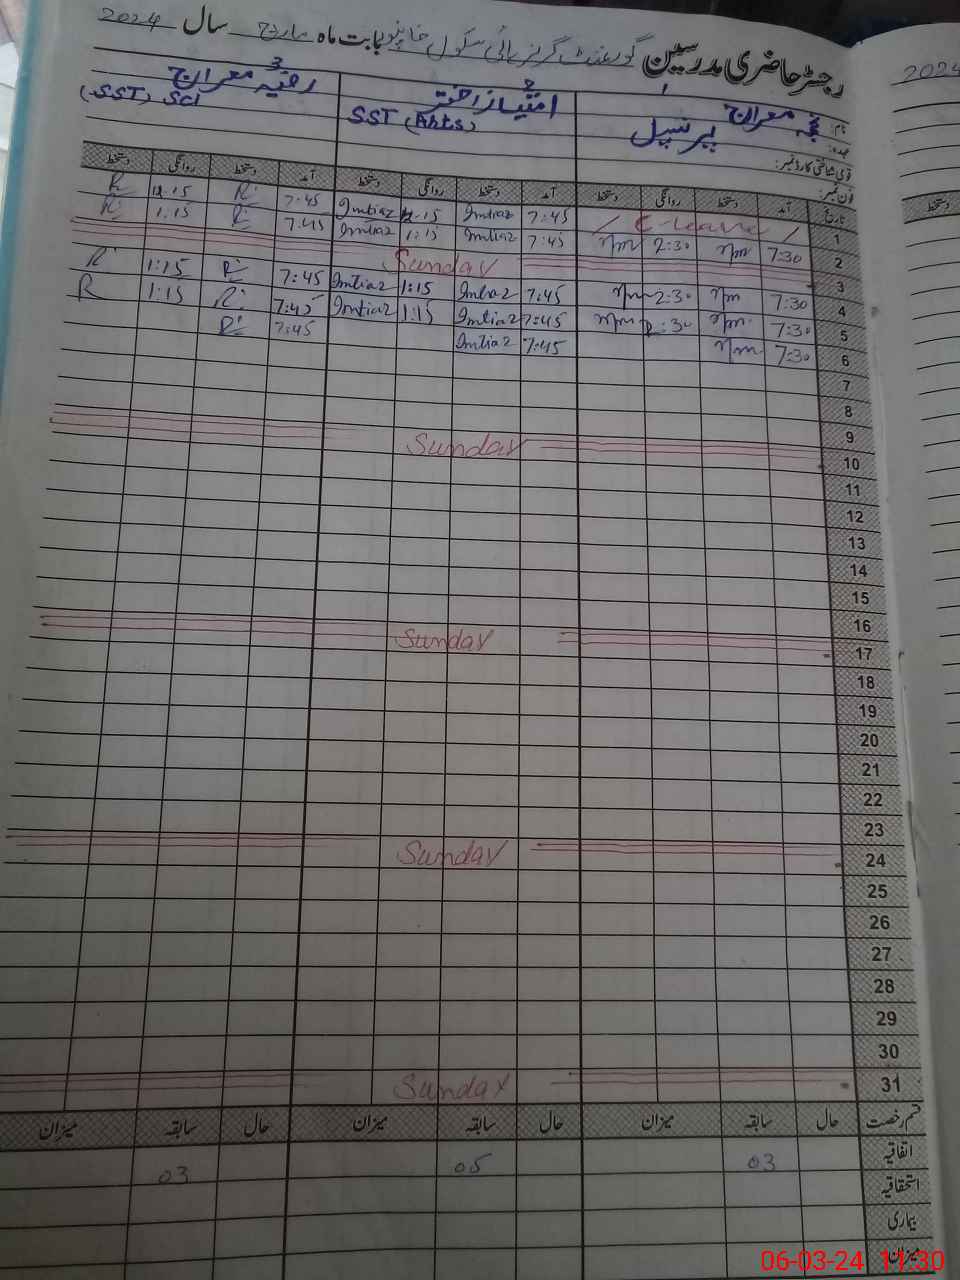 رجسٹر حاضری مدرسین گورنمنٹ گرلز ہائی سکول خانپور بابت ماہ مارچ سال 2024
2024
نام: نجمہ معراج 1 امتیاز اختر 2 رقیہ معراج 3
عہدہ: پرنسپل SST (Arts) (SST) Sci
قومی شناختی کارڈ نمبر:
فون نمبر:
تاریخ آمد دستخط روانگی دستخط آمد دستخط روانگی دستخط آمد دستخط روانگی دستخط
دستخط
1 / C-leave / 7:45 Imtiaz 12.15 Imtiaz 7:45 R 12.15 R
2 7:30 nm 2:30 nm 7:45 Imtiaz 1:15 Imtiaz 7:45 R 1:15 R
3 Sunday
4 7:30 nm 2:30 nm 7:45 Imtiaz 1:15 Imtiaz 7:45 R 1:15 R
5 7:30 nm 2:30 nm 7:45 Imtiaz 1:15 Imtiaz 7:45 R 1:15 R
6 7:30 nm 7:45 Imtiaz 7:45 R
7
8
9
10 Sunday
11
12
13
14
15
16
17 Sunday
18
19
20
21
22
23
24 Sunday
25
26
27
28
29
30
31 Sunday
قسم رخصت حال سابقہ میزان حال سابقہ میزان حال سابقہ میزان
اتفاقیہ 03 05 03
استحقاقیہ
بیماری
میزان
06-03-24 11:30